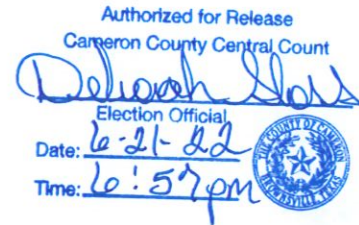 Authorized for Release
Cameron County Central Count
Deborah
Election Official
Date: 6-21-22
Time: 6:57 pm
THE COUNTY OF CAMERON
BROWNSVILLE, TEXAS